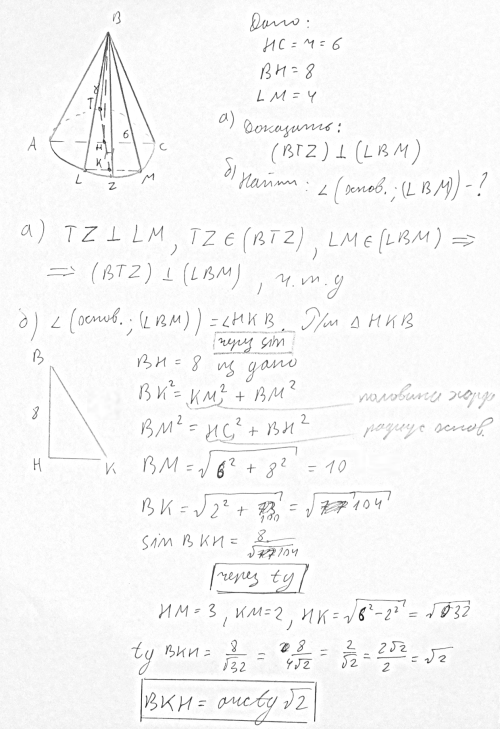 B
Дано:
HC = r = 6
BH = 8
LM = 4
а) Доказать:
(BTZ) ⊥ (LBM)
б) Найти: ∠(основ.; (LBM)) - ?
T
A
H
6
C
K
L
Z
M
а) TZ ⊥ LM, TZ ∈ (BTZ), LM ∈ (LBM) ⇒
⇒ (BTZ) ⊥ (LBM), ч.т.д
б) ∠(основ.; (LBM)) = ∠HKB. Р/м △HKB
через sin
B
8
H
K
BH = 8 из дано
BK² = KM² + BM² половина хорд
BM² = HC² + BH² радиус основ.
BM = √6² + 8² = 10
BK = √2² + 100 = √104
sin BKH = 8/√104
через tg
HM = 3, KM = 2, HK = √6²-2² = √32
tg BKH = 8/√32 = 8/4√2 = 2/√2 = 2√2/2 = √2
BKH = arctg √2